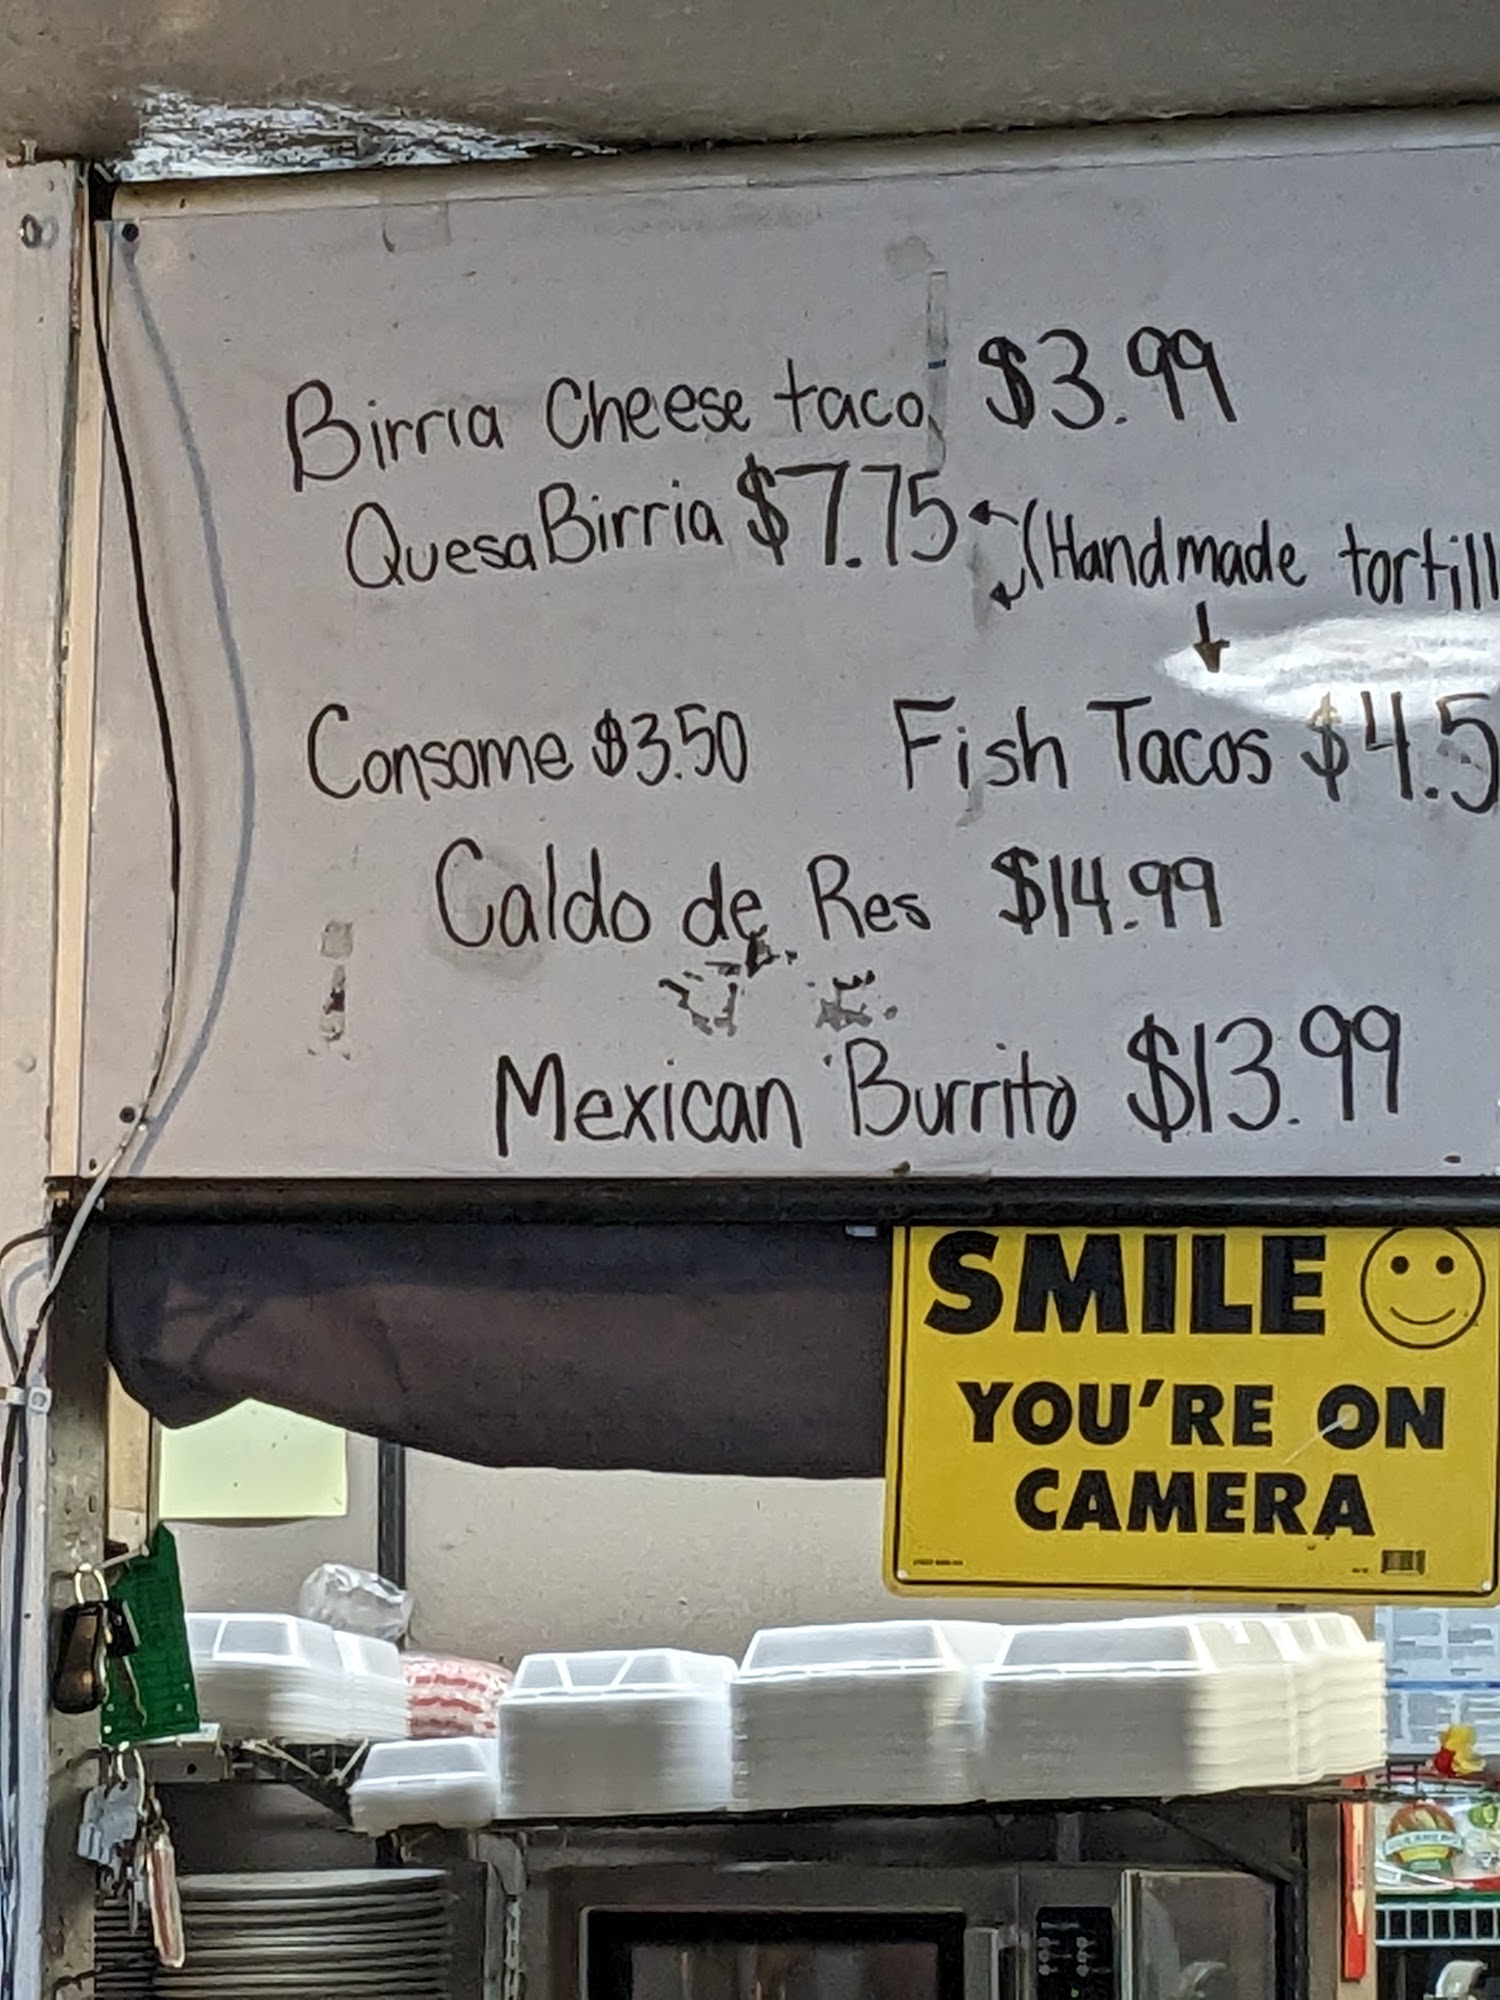 Birria Cheese taco $3.99
QuesaBirria $7.75 (Handmade tortill
Consome $3.50 Fish Tacos $4.5
Caldo de Res $14.99
Mexican Burrito $13.99
SMILE
YOU'RE ON
CAMERA